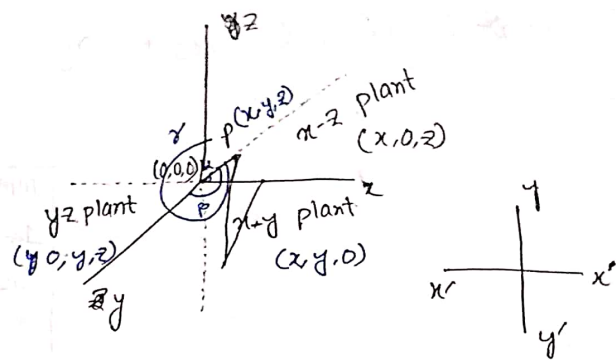 z
P(x,y,z)
x-z plant
(x,0,z)
γ
(0,0,0)
x
yz plant
(0,y,z)
β
x+y plant
(x,y,0)
y
y
x'
x
y'